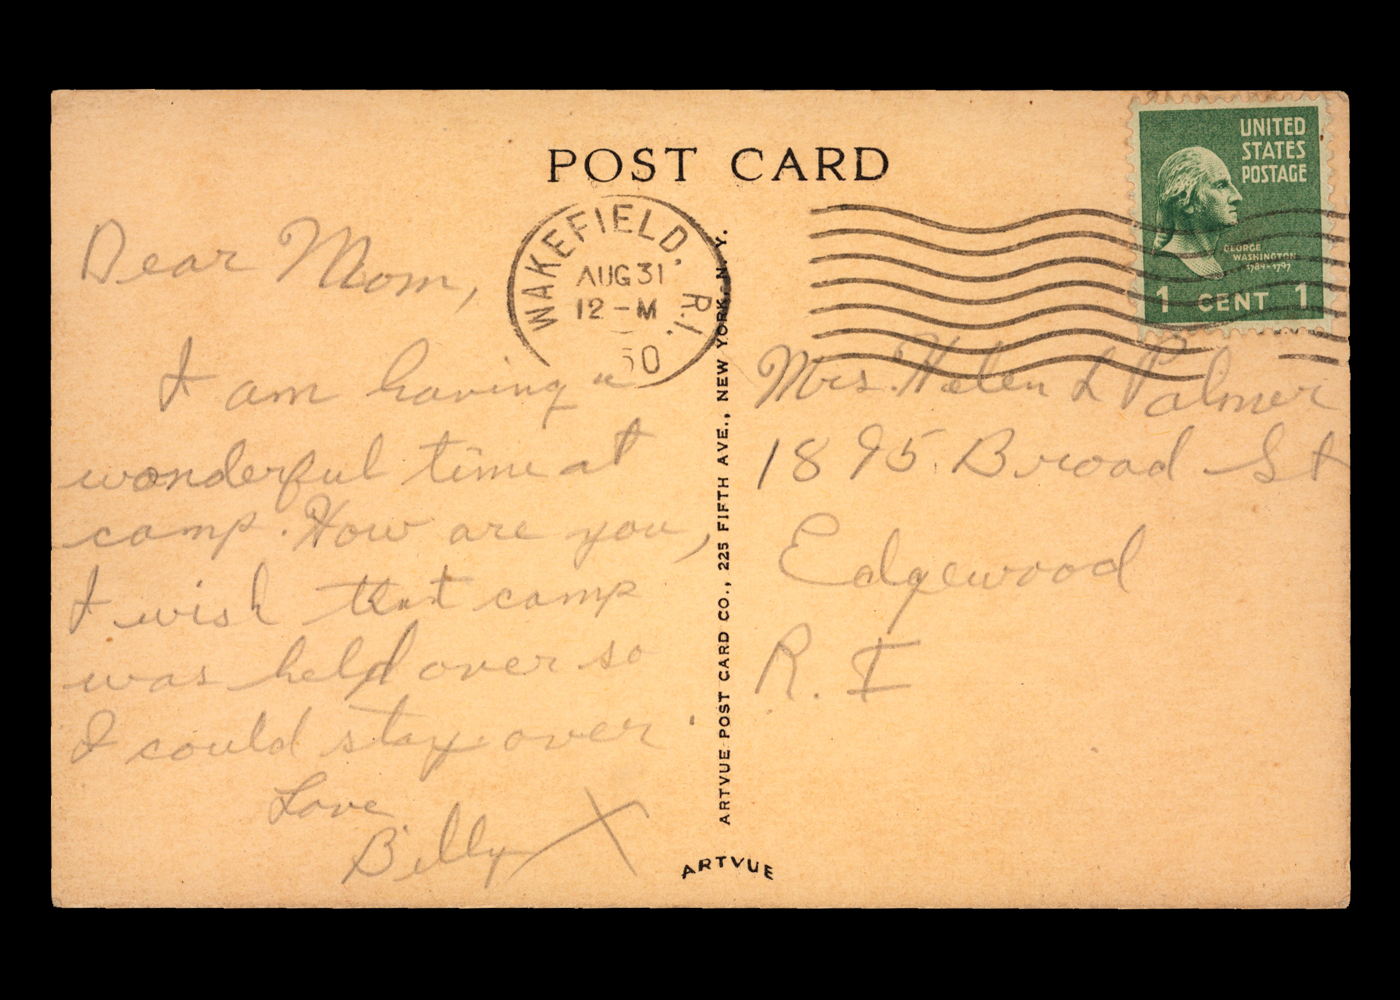 POST CARD
UNITED
STATES
POSTAGE
GEORGE
WASHINGTON
1789-1797
1 CENT 1
WAKEFIELD, R.I.
AUG 31
12-M
50
Dear Mom,
I am having a
wonderful time at
camp. How are you,
I wish that camp
was held over so
I could stay over.
Love
Billy X
Mrs. Helen L Palmer
1895 Broad St
Edgewood
R. I
ARTVUE POST CARD CO., 225 FIFTH AVE., NEW YORK, N. Y.
ARTVUE